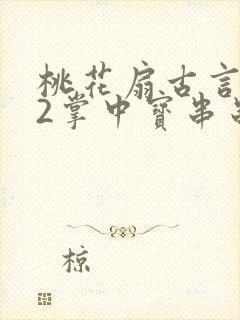 桃花扇古言
2掌中寳串
椋